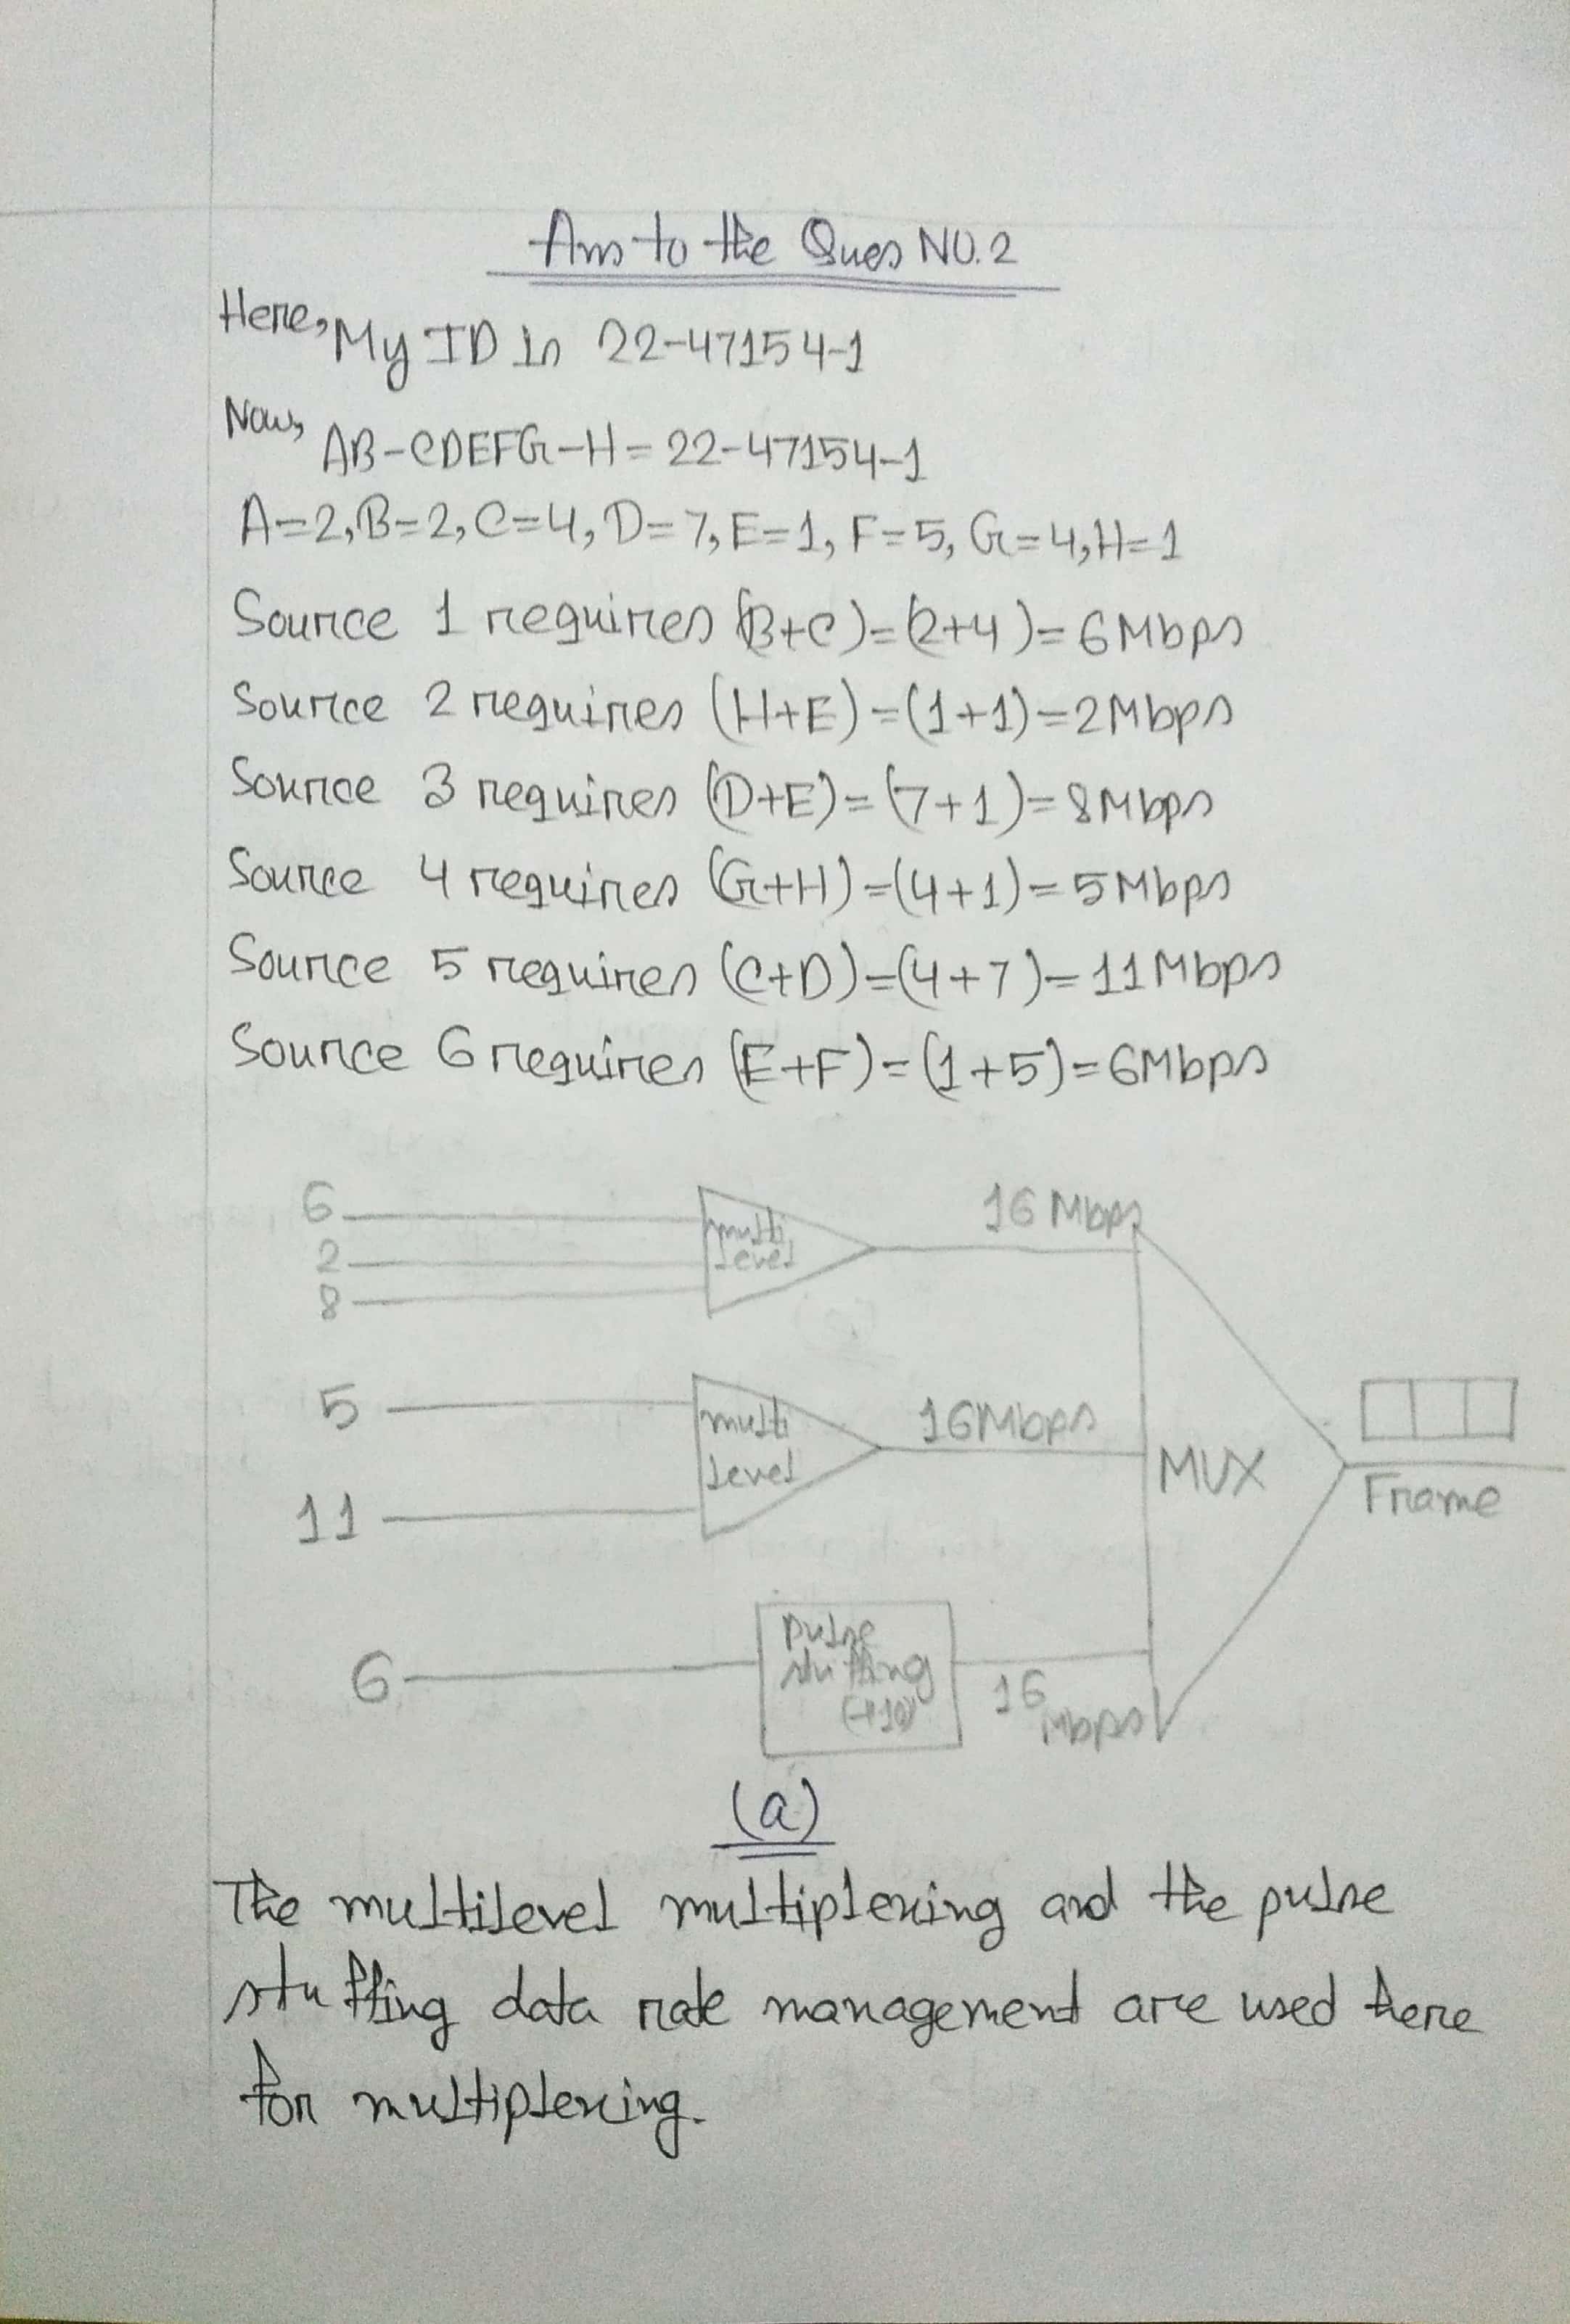 Ans to the Ques No.2
Here, My ID is 22-47154-1
Now, AB-CDEFG-H = 22-47154-1
A=2, B=2, C=4, D=7, E=1, F=5, G=4, H=1
Source 1 requires (B+C)=(2+4)=6Mbps
Source 2 requires (H+E)=(1+1)=2Mbps
Source 3 requires (D+E)=(7+1)=8Mbps
Source 4 requires (G+H)=(4+1)=5Mbps
Source 5 requires (C+D)=(4+7)=11Mbps
Source 6 requires (E+F)=(1+5)=6Mbps
6
2
8
multi
level
16 Mbps
5
11
multi
level
16Mbps
MUX
Frame
6
pulse
stuffing
(+10)
16
Mbps
(a)
The multilevel multiplexing and the pulse
stuffing data rate management are used here
for multiplexing.